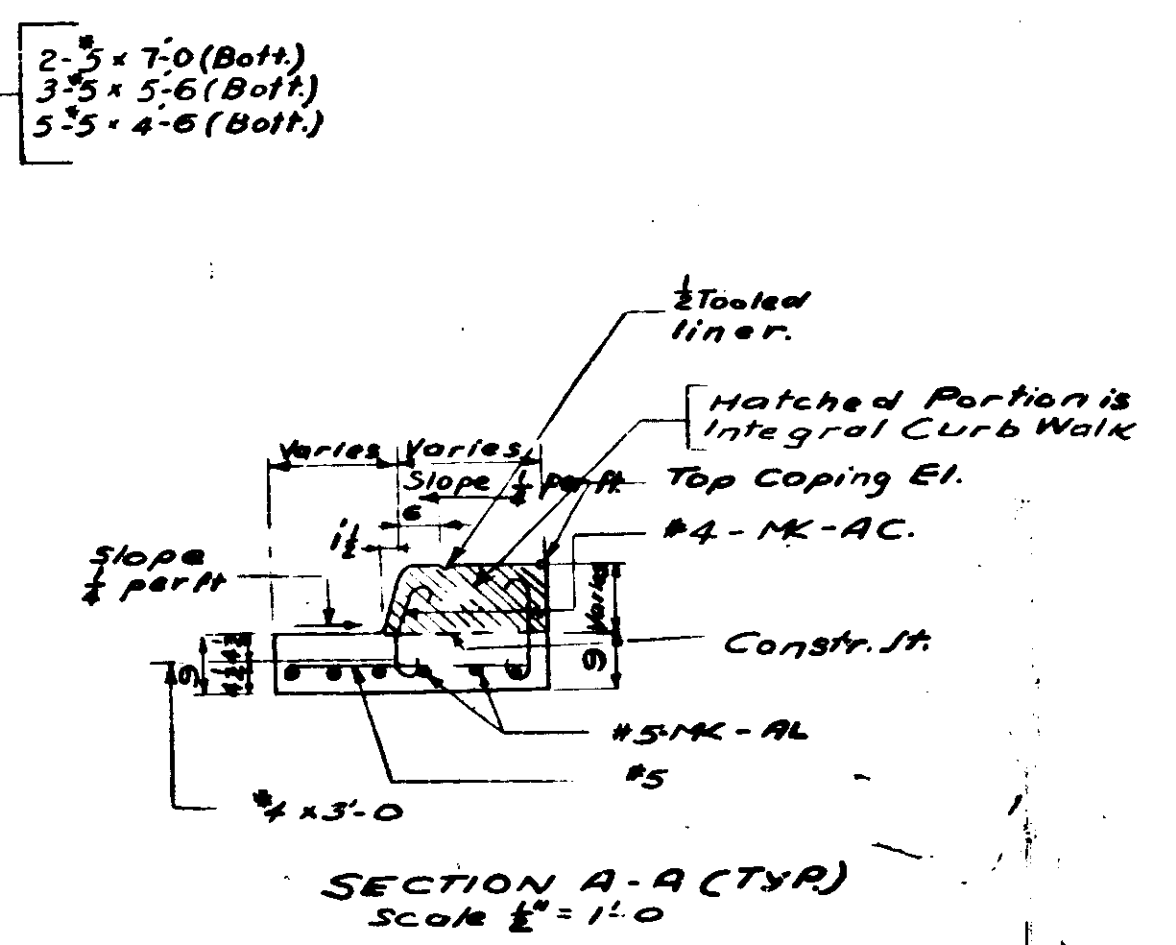 2-#5 x 7'-0 (Bott.)
3-#5 x 5'-6 (Bott.)
5-#5 x 4'-6 (Bott.)
½ Tooled
liner.
Hatched Portion is
Integral Curb Walk
Varies
Varies
Slope ¼ per ft.
Top Coping El.
6
1½
#4-MK-AC.
Slope
¼ per ft
Varies
Constr. Jt.
9
4½
4½
9
#5-MK-AL
#5
#4 x 3'-0
SECTION A-A (TYP.)
Scale ½" = 1'-0